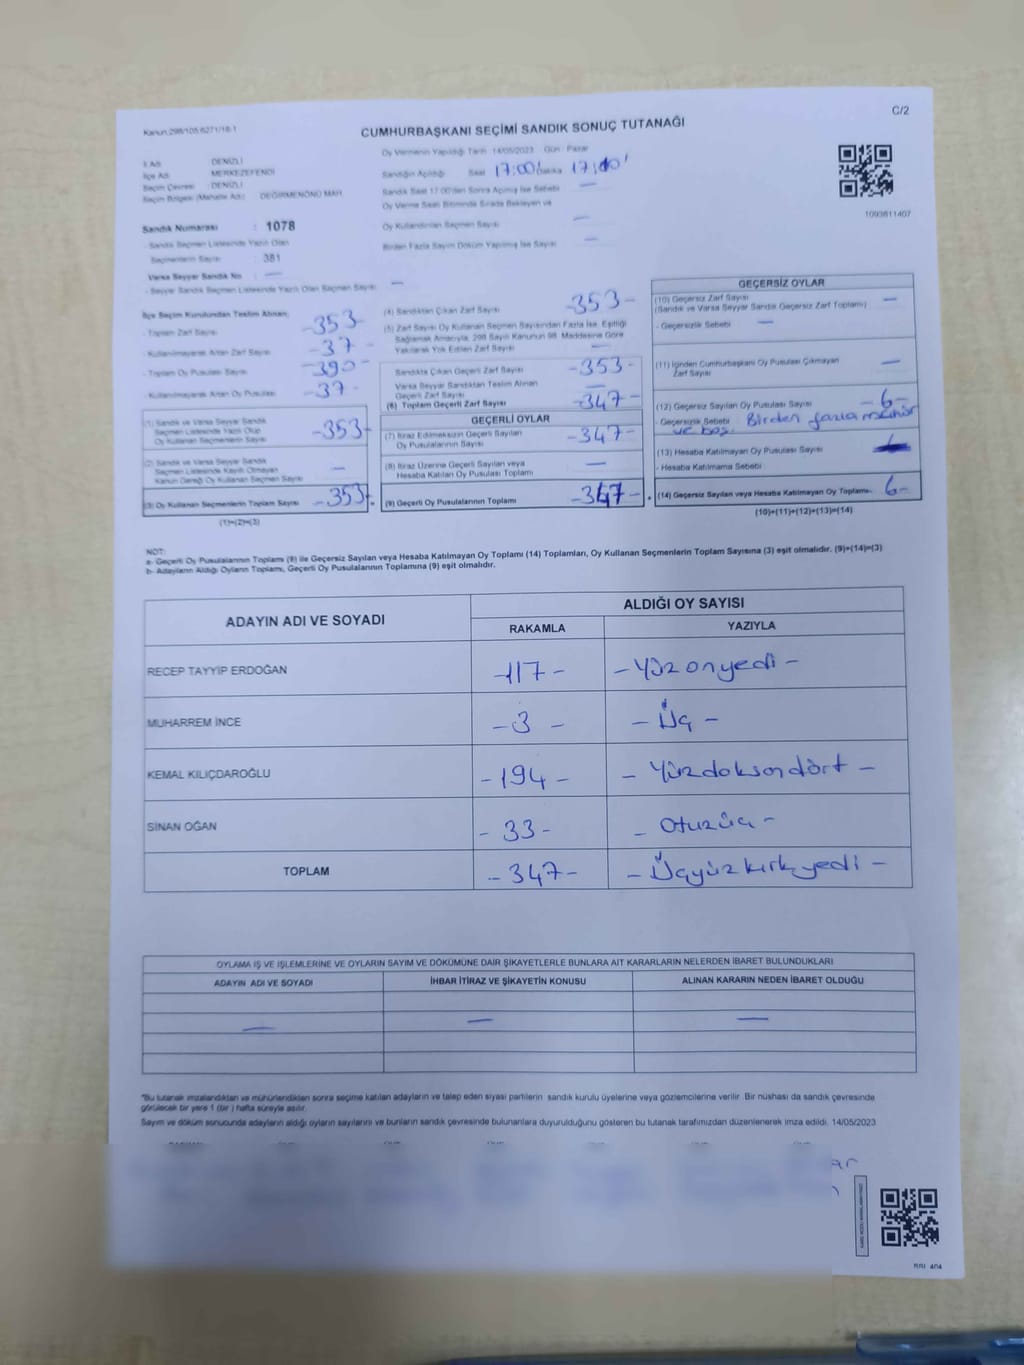 Kanun:298/105 6271/18-1
C/2
CUMHURBAŞKANI SEÇİMİ SANDIK SONUÇ TUTANAĞI
İl Adı : DENİZLİ
İlçe Adı : MERKEZEFENDİ
Seçim Çevresi : DENİZLİ
Seçim Bölgesi (Mahalle Adı) : DEĞİRMENÖNÜ MAH.
Sandık Numarası : 1078
- Sandık Seçmen Listesinde Yazılı Olan
Seçmenlerin Sayısı : 381
Varsa Seyyar Sandık No : —
- Seyyar Sandık Seçmen Listesinde Yazılı Olan Seçmen Sayısı —
Oy Vermenin Yapıldığı Tarih : 14/05/2023 Gün : Pazar
Sandığın Açıldığı Saat 17:00 Dakika
Sandık Saat 17:00'den Sonra Açılmış İse Sebebi —
Oy Verme Saati Bitiminde Sırada Bekleyen ve
Oy Kullandırılan Seçmen Sayısı —
Birden Fazla Sayım Döküm Yapılmış İse Sayısı —
1093811407
İlçe Seçim Kurulundan Teslim Alınan;
- Toplam Zarf Sayısı -353-
- Kullanılmayarak Artan Zarf Sayısı -37-
- Toplam Oy Pusulası Sayısı -390-
- Kullanılmayarak Artan Oy Pusulası -37-
(1) Sandık ve Varsa Seyyar Sandık
Seçmen Listesinde Yazılı Olup
Oy Kullanan Seçmenlerin Sayısı -353-
(2) Sandık ve Varsa Seyyar Sandık
Seçmen Listesinde Kayıtlı Olmayan
Kanun Gereği Oy Kullanan Seçmen Sayısı —
(3) Oy Kullanan Seçmenlerin Toplam Sayısı -353-
(1)+(2)=(3)
(4) Sandıktan Çıkan Zarf Sayısı -353-
(5) Zarf Sayısı Oy Kullanan Seçmen Sayısından Fazla İse, Eşitliği
Sağlamak Amacıyla, 298 Sayılı Kanunun 98. Maddesine Göre
Yakılarak Yok Edilen Zarf Sayısı —
Sandıkta Çıkan Geçerli Zarf Sayısı -353-
Varsa Seyyar Sandıktan Teslim Alınan
Geçerli Zarf Sayısı —
(6) Toplam Geçerli Zarf Sayısı -347-
GEÇERLİ OYLAR
(7) İtiraz Edilmeksizin Geçerli Sayılan
Oy Pusulasının Sayısı -347-
(8) İtiraz Üzerine Geçerli Sayılan veya
Hesaba Katılan Oy Pusulası Toplamı —
(9) Geçerli Oy Pusulalarının Toplamı -347-
GEÇERSİZ OYLAR
(10) Geçersiz Zarf Sayısı —
(Sandık ve Varsa Seyyar Sandık Geçersiz Zarf Toplamı)
- Geçersizlik Sebebi —
(11) İçinden Cumhurbaşkanı Oy Pusulası Çıkmayan
Zarf Sayısı —
(12) Geçersiz Sayılan Oy Pusulası Sayısı -6-
- Geçersizlik Sebebi Birden fazla mühür
ve boş.
(13) Hesaba Katılmayan Oy Pusulası Sayısı
- Hesaba Katılmama Sebebi
(14) Geçersiz Sayılan veya Hesaba Katılmayan Oy Toplamı- 6-
(10)+(11)+(12)+(13)=(14)
NOT:
a- Geçerli Oy Pusulalarının Toplamı (9) ile Geçersiz Sayılan veya Hesaba Katılmayan Oy Toplamı (14) Toplamları, Oy Kullanan Seçmenlerin Toplam Sayısına (3) eşit olmalıdır. (9)+(14)=(3)
b- Adayların Aldığı Oyların Toplamı, Geçerli Oy Pusulalarının Toplamına (9) eşit olmalıdır.
ADAYIN ADI VE SOYADI ALDIĞI OY SAYISI
RAKAMLA YAZIYLA
RECEP TAYYİP ERDOĞAN -117- -Yüzonyedi-
MUHARREM İNCE -3- -Üç-
KEMAL KILIÇDAROĞLU -194- -Yüzdoksandört-
SİNAN OĞAN -33- -Otuzüç-
TOPLAM -347- -Üçyüzkırkyedi-
OYLAMA İŞ VE İŞLEMLERİNE VE OYLARIN SAYIM VE DÖKÜMÜNE DAİR ŞİKAYETLERLE BUNLARA AİT KARARLARIN NELERDEN İBARET BULUNDUKLARI
ADAYIN ADI VE SOYADI İHBAR İTİRAZ VE ŞİKAYETİN KONUSU ALINAN KARARIN NEDEN İBARET OLDUĞU
— — —
"Bu tutanak imzalandıktan ve mühürlendikten sonra seçime katılan adayların ve talep eden siyasi partilerin sandık kurulu üyelerine veya gözlemcilerine verilir. Bir nüshası da sandık çevresinde
görülecek bir yere 1 (bir ) hafta süreyle asılır.
Sayım ve döküm sonucunda adayların aldığı oyların sayılarını ve bunların sandık çevresinde bulunanlara duyurulduğunu gösteren bu tutanak tarafımızdan düzenlenerek imza edildi. 14/05/2023